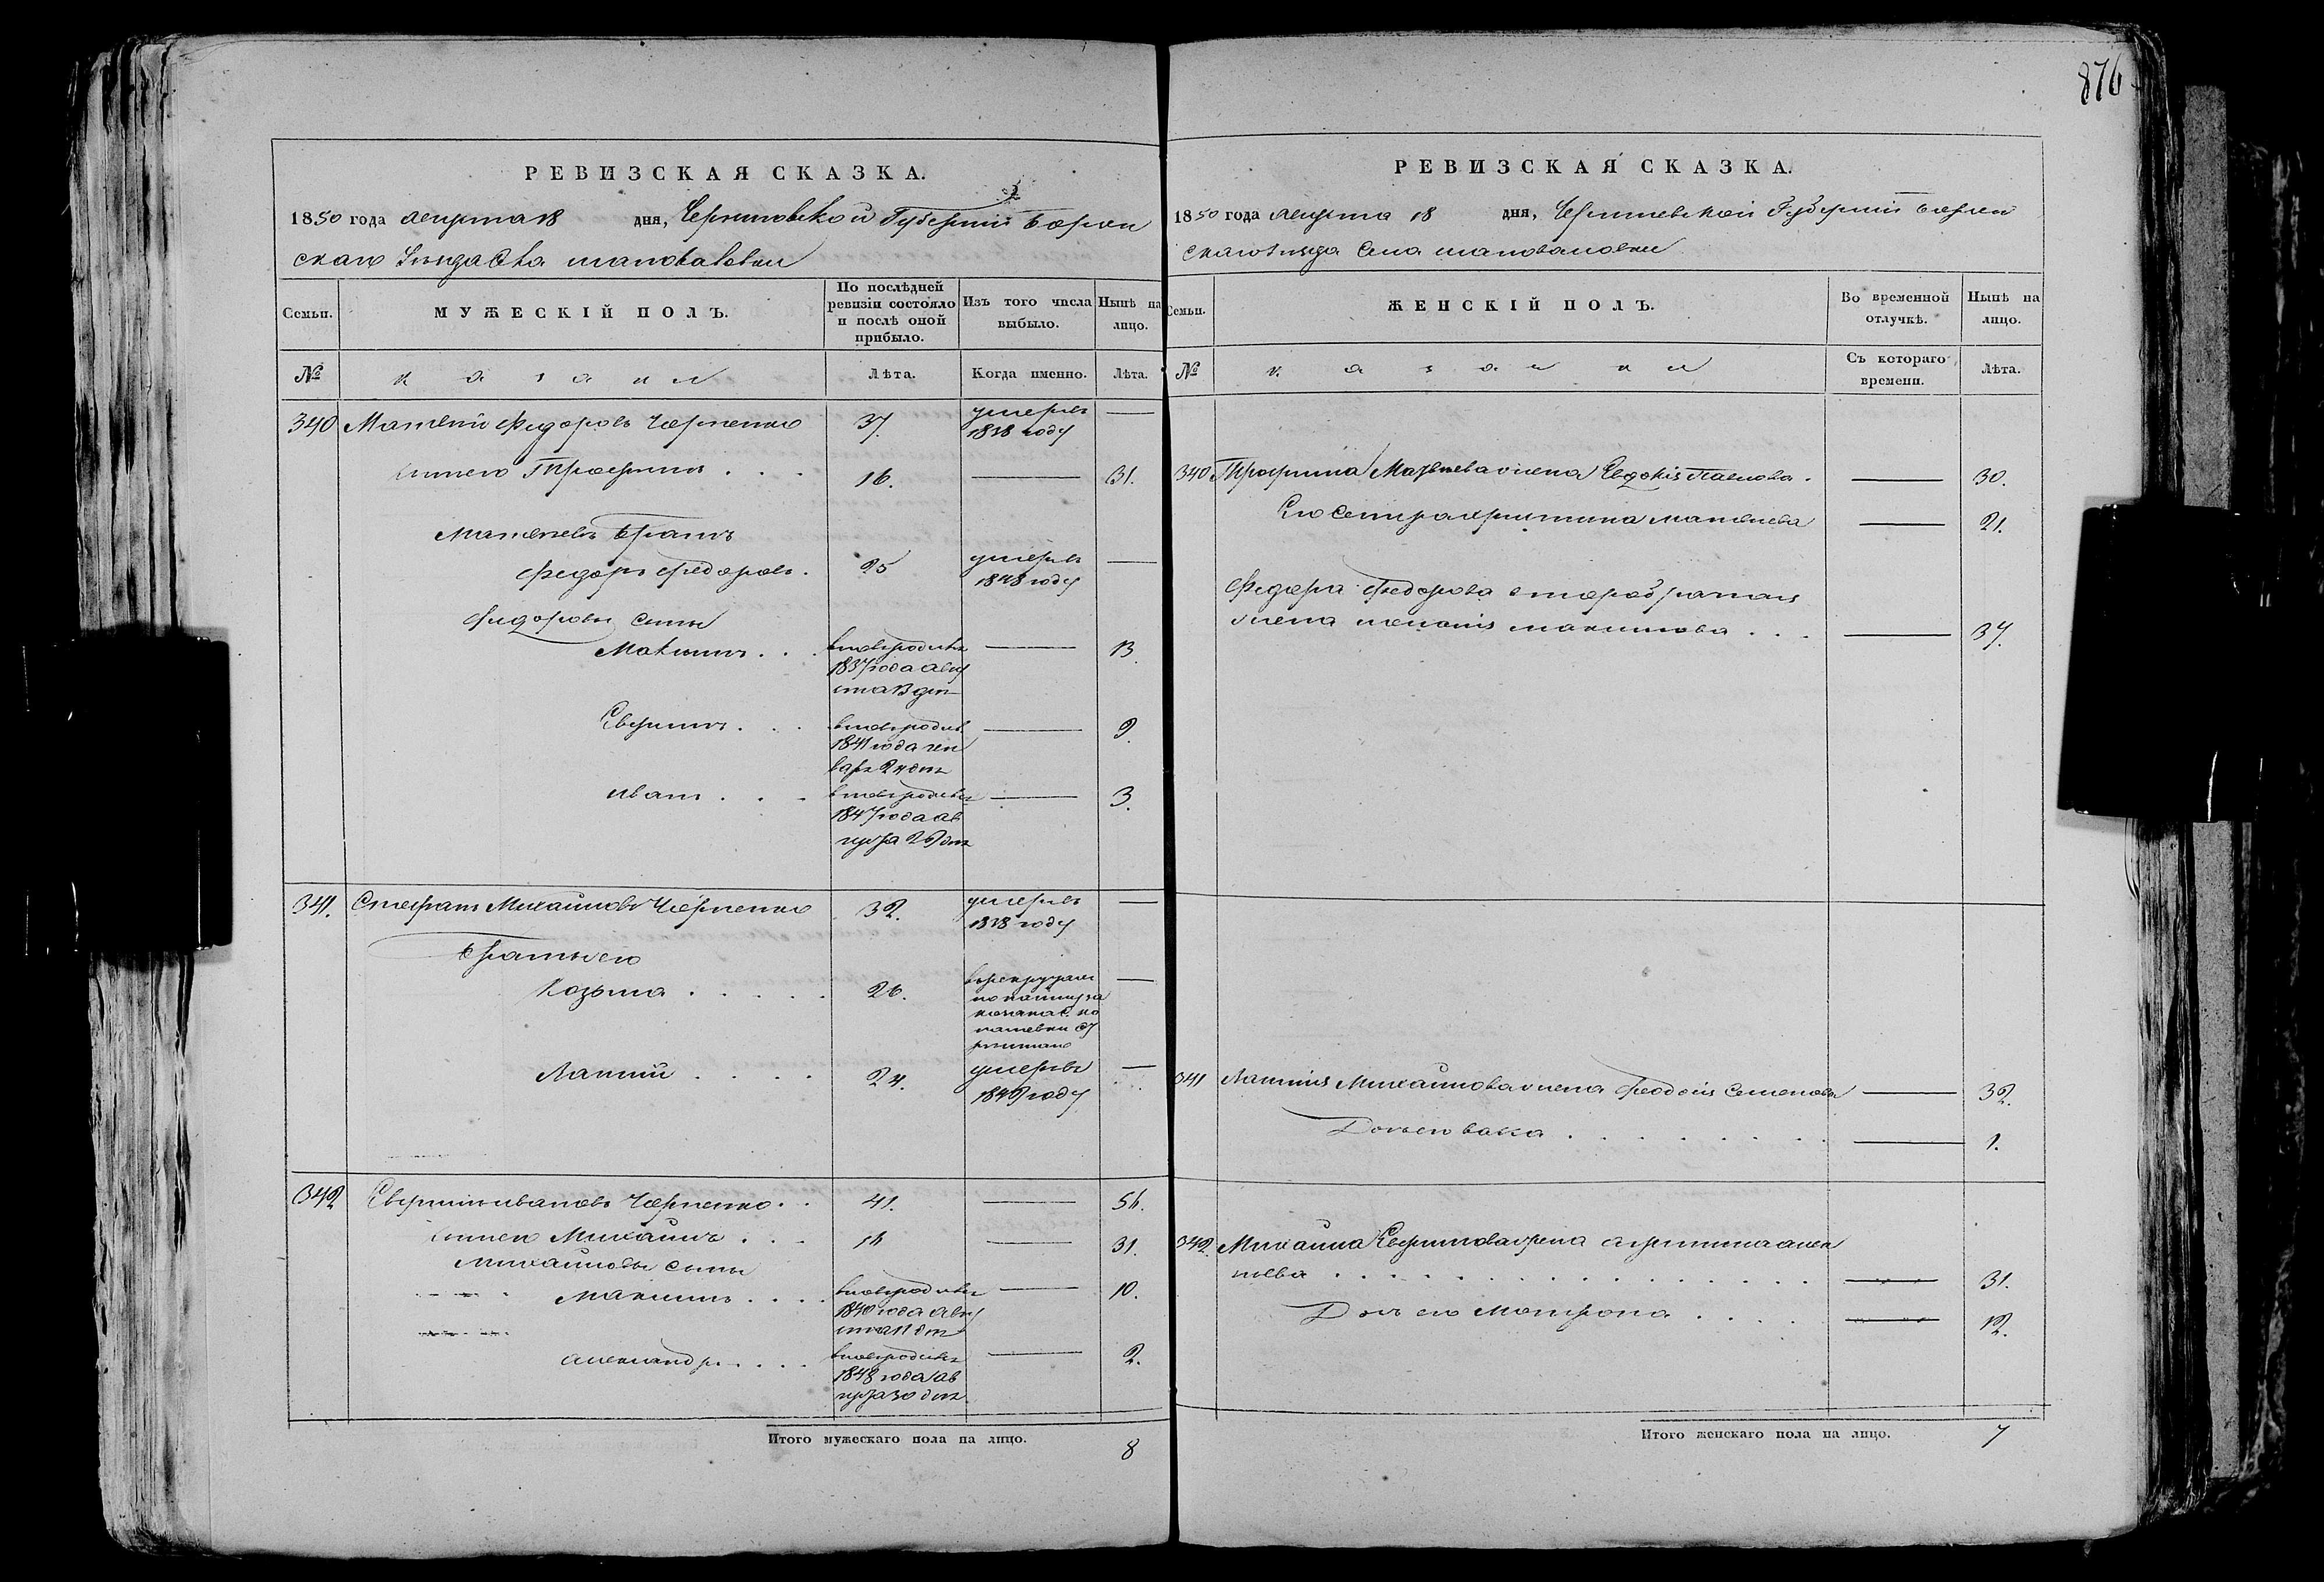 876
РЕВИЗСКАЯ СКАЗКА.
1850 года августа 18 дня, Черниговской Губернии Борзен
скаго Уезда Села шаповаловки
Семьи. МУЖЕСКІЙ ПОЛЪ. По послѣдней ревизіи состояло и послѣ оной прибыло. Изъ того числа выбыло. Нынѣ на лицо.
№ казаки Лѣта. Когда именно. Лѣта.
340 Матвей Федоровъ Черненко 37. умеръ 1838 году —
сынего Трофимъ . . . 16. — 31.
Матвеевъ братъ
Федоръ Федоровъ . 25 умеръ 1848 году —
Федоровы сыны
Максимъ . . . вновъродивъ — 13.
1837 года авгу
ста 13 дня
Евфимъ . . . вновьродив — 9.
1841 года ген
варя 24 дня
иванъ . . . вновьродивъ — 3.
1847 года ав
густа 26 дня
341. Стефанъ Михайловъ Черненко 32. умеръ 1838 году —
братьего
Козьма . . . . . 26. —
Лаппий . . . . 24. умеръ 1849 году —
342 Евфимъ ивановъ Черненко . . 41. — 56.
сынего Михаилъ . . . 16 — 31.
Михайловы сыны
Максимъ . . . . вновьродивъ — 10.
1840 года авгу
ста 11 дня
александръ . . . . вновьродивъ — 2.
1848 года ав
густа 30 дня
Итого мужескаго пола на лицо. 8
РЕВИЗСКАЯ СКАЗКА.
1850 года августа 18 дня, Черниговской Губернии Борзен
скаго Уезда Села шаповаловки
Семьи. ЖЕНСКІЙ ПОЛЪ. Во временной отлучкѣ. Нынѣ на лицо.
№ казачки Съ котораго времени. Лѣта.
340 Трофима Матвеева жена Евдокия Павлова . — 30.
Его Сестра христина матвеева — 21.
Федора Федорова
жена максимова . . . — 37.
341 Михайлова жена Феодосия Семенова — 32.
Дочьего васса . . . . . . . — 1.
342. Михаила Евфимова жена
. . . . . . . . . . . . . — 31.
Дочь его Матрона . . . . — 12.
Итого женскаго пола на лицо. 7